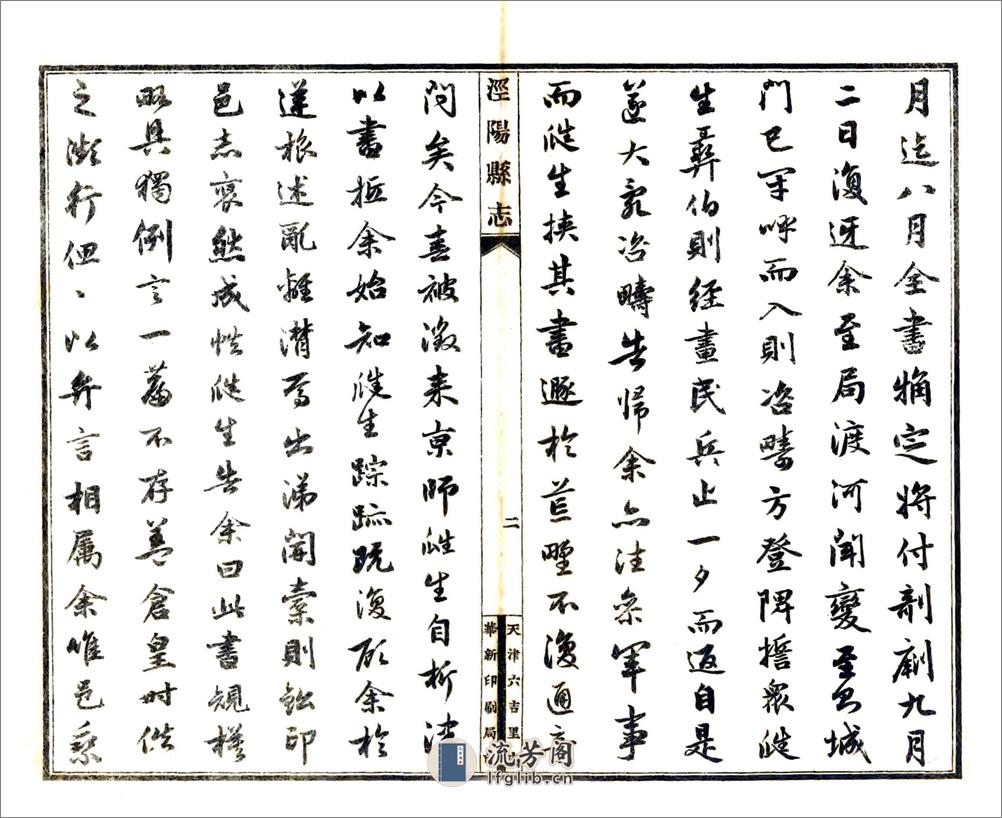 月迄八月全書定將付剞劂九月
二日復迓余至局渡河聞變至則城
門已牢呼而入則咨疇方登陴誓眾雒
生彝伯則經畫民兵止一夕而返自是
遂大亂咨疇告歸余亦往參軍事
而雒生挾其書遯於荒野不復通音
涇陽縣志
二
天津六吉里
華新印刷局
問矣今春被徵來京師雒生自析津
以書抵余始知雒生踪跡既復顧余於
逆旅述亂離潸焉出涕開橐則鉛印
邑志裒然成帙雒生告余曰此書規模
略具獨例言一篇不存蓋倉皇時佚
之瀕行以弁言相属余惟邑乘
流芳阁
lfglib.cn